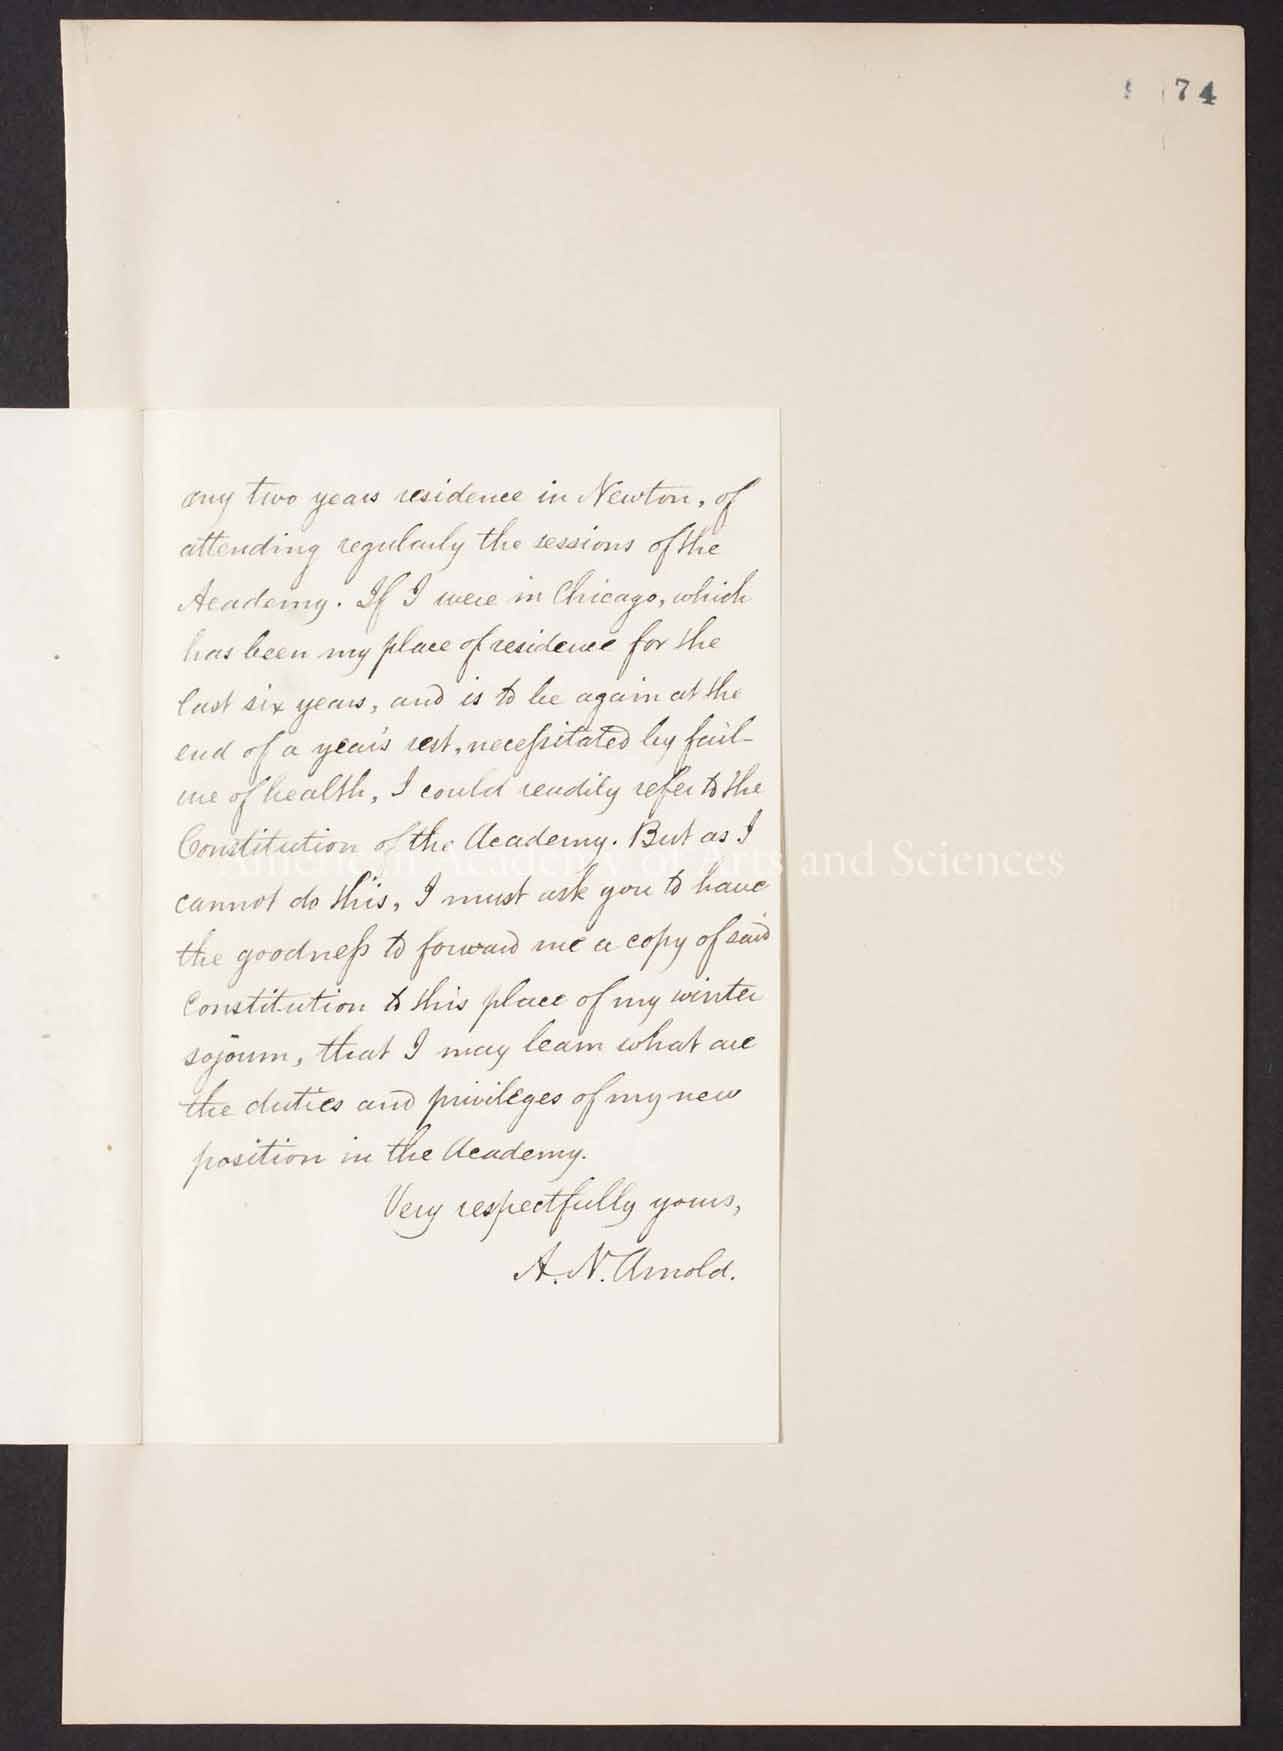 74
my two years residence in Newton, of
attending regularly the sessions of the
Academy. If I were in Chicago, which
has been my place of residence for the
last six years, and is to be again at the
end of a year's rest, necessitated by fail-
ure of health, I could readily refer to the
Constitution of the Academy. But as I
American Academy of Arts and Sciences
cannot do this, I must ask you to have
the goodness to forward me a copy of said
Constitution to this place of my winter
sojourn, that I may learn what are
the duties and privileges of my new
position in the Academy.
Very respectfully yours,
A. N. Arnold.